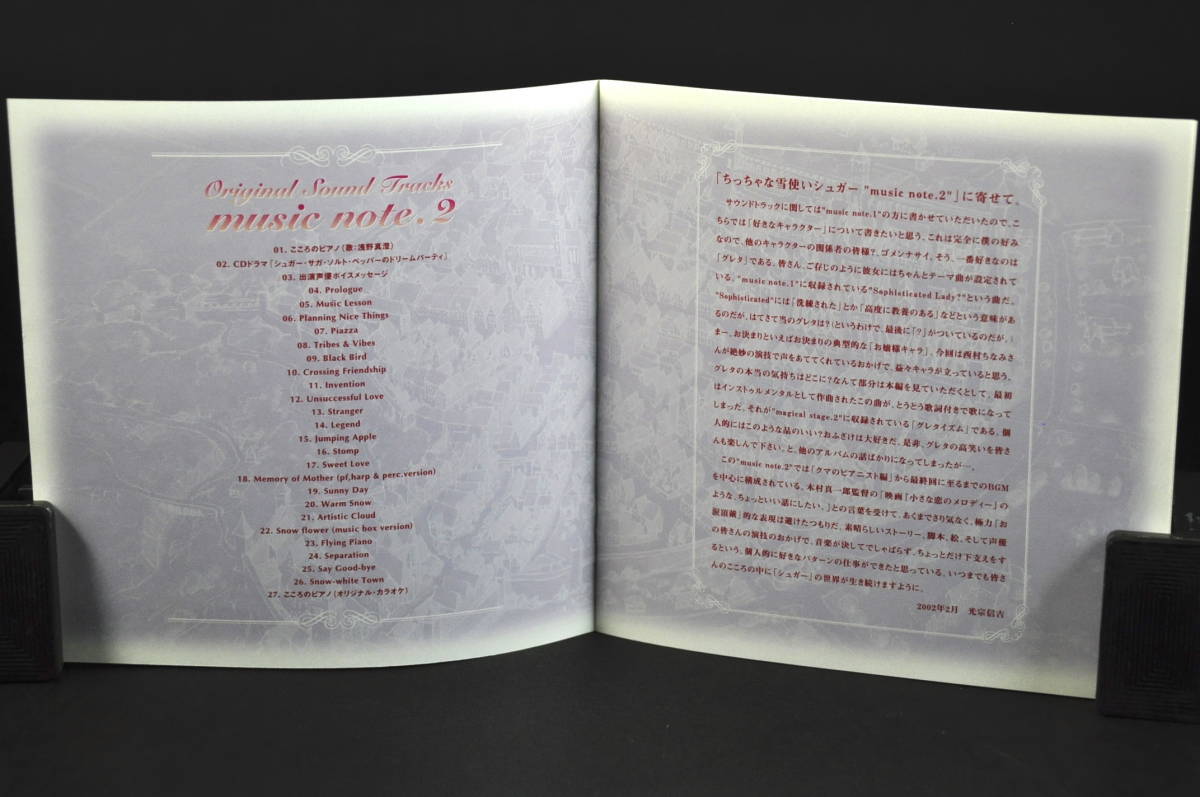 Original Sound Tracks
music note.2
01. こころのピアノ（歌：浅野真澄）
02. CDドラマ「シュガー・サガ・ソルト・ペッパーのドリームパーティ」
03. 出演声優ボイスメッセージ
04. Prologue
05. Music Lesson
06. Planning Nice Things
07. Piazza
08. Tribes & Vibes
09. Black Bird
10. Crossing Friendship
11. Invention
12. Unsuccessful Love
13. Stranger
14. Legend
15. Jumping Apple
16. Stomp
17. Sweet Love
18. Memory of Mother (pf,harp & perc.version)
19. Sunny Day
20. Warm Snow
21. Artistic Cloud
22. Snow flower (music box version)
23. Flying Piano
24. Separation
25. Say Good-bye
26. Snow-white Town
27. こころのピアノ（オリジナル・カラオケ）
「ちっちゃな雪使いシュガー "music note.2"」に寄せて。
サウンドトラックに関しては"music note.1"の方に書かせていただいたので、こ
ちらでは「好きなキャラクター」について書きたいと思う。これは完全に僕の好み
なので、他のキャラクターの関係者の皆様?、ゴメンナサイ。そう、一番好きなのは
「グレタ」である。皆さん、ご存じのように彼女にはちゃんとテーマ曲が設定されて
いる。"music note.1"に収録されている"Sophisticated Lady?"という曲だ。
"Sophisticated"には「洗練された」とか「高度に教養のある」などという意味があ
るのだが、はてさて当のグレタは?（というわけで、最後に「?」がついているのだが。）
まー、お決まりといえばお決まりの典型的な「お嬢様キャラ」。今回は西村ちなみさ
んが絶妙の演技で声をあててくれているおかげで、益々キャラが立っていると思う。
グレタの本当の気持ちはどこに?なんて部分は本編を見ていただくとして、最初
はインストゥルメンタルとして作曲されたこの曲が、とうとう歌詞付きで歌になって
しまった。それが"magical stage.2"に収録されている「グレタイズム」である。個
人的にはこのような品のいい?おふざけは大好きだ。是非、グレタの高笑いを皆さ
んも楽しんで下さい。と、他のアルバムの話ばかりになってしまったが…。
この"music note.2"では「クマのピアニスト編」から最終回に至るまでのBGM
を中心に構成されている。木村真一郎監督の「映画『小さな恋のメロディー』の
ような、ちょっといい話にしたい。」との言葉を受けて、あくまでさり気なく、極力「お
涙頂戴」的な表現は避けたつもりだ。素晴らしいストーリー、脚本、絵、そして声優
の皆さんの演技のおかげで、音楽が決してでしゃばらず、ちょっとだけ下支えをす
るという、個人的に好きなパターンの仕事ができたと思っている。いつまでも皆さ
んのこころの中に「シュガー」の世界が生き続けますように。
2002年2月 光宗信吉